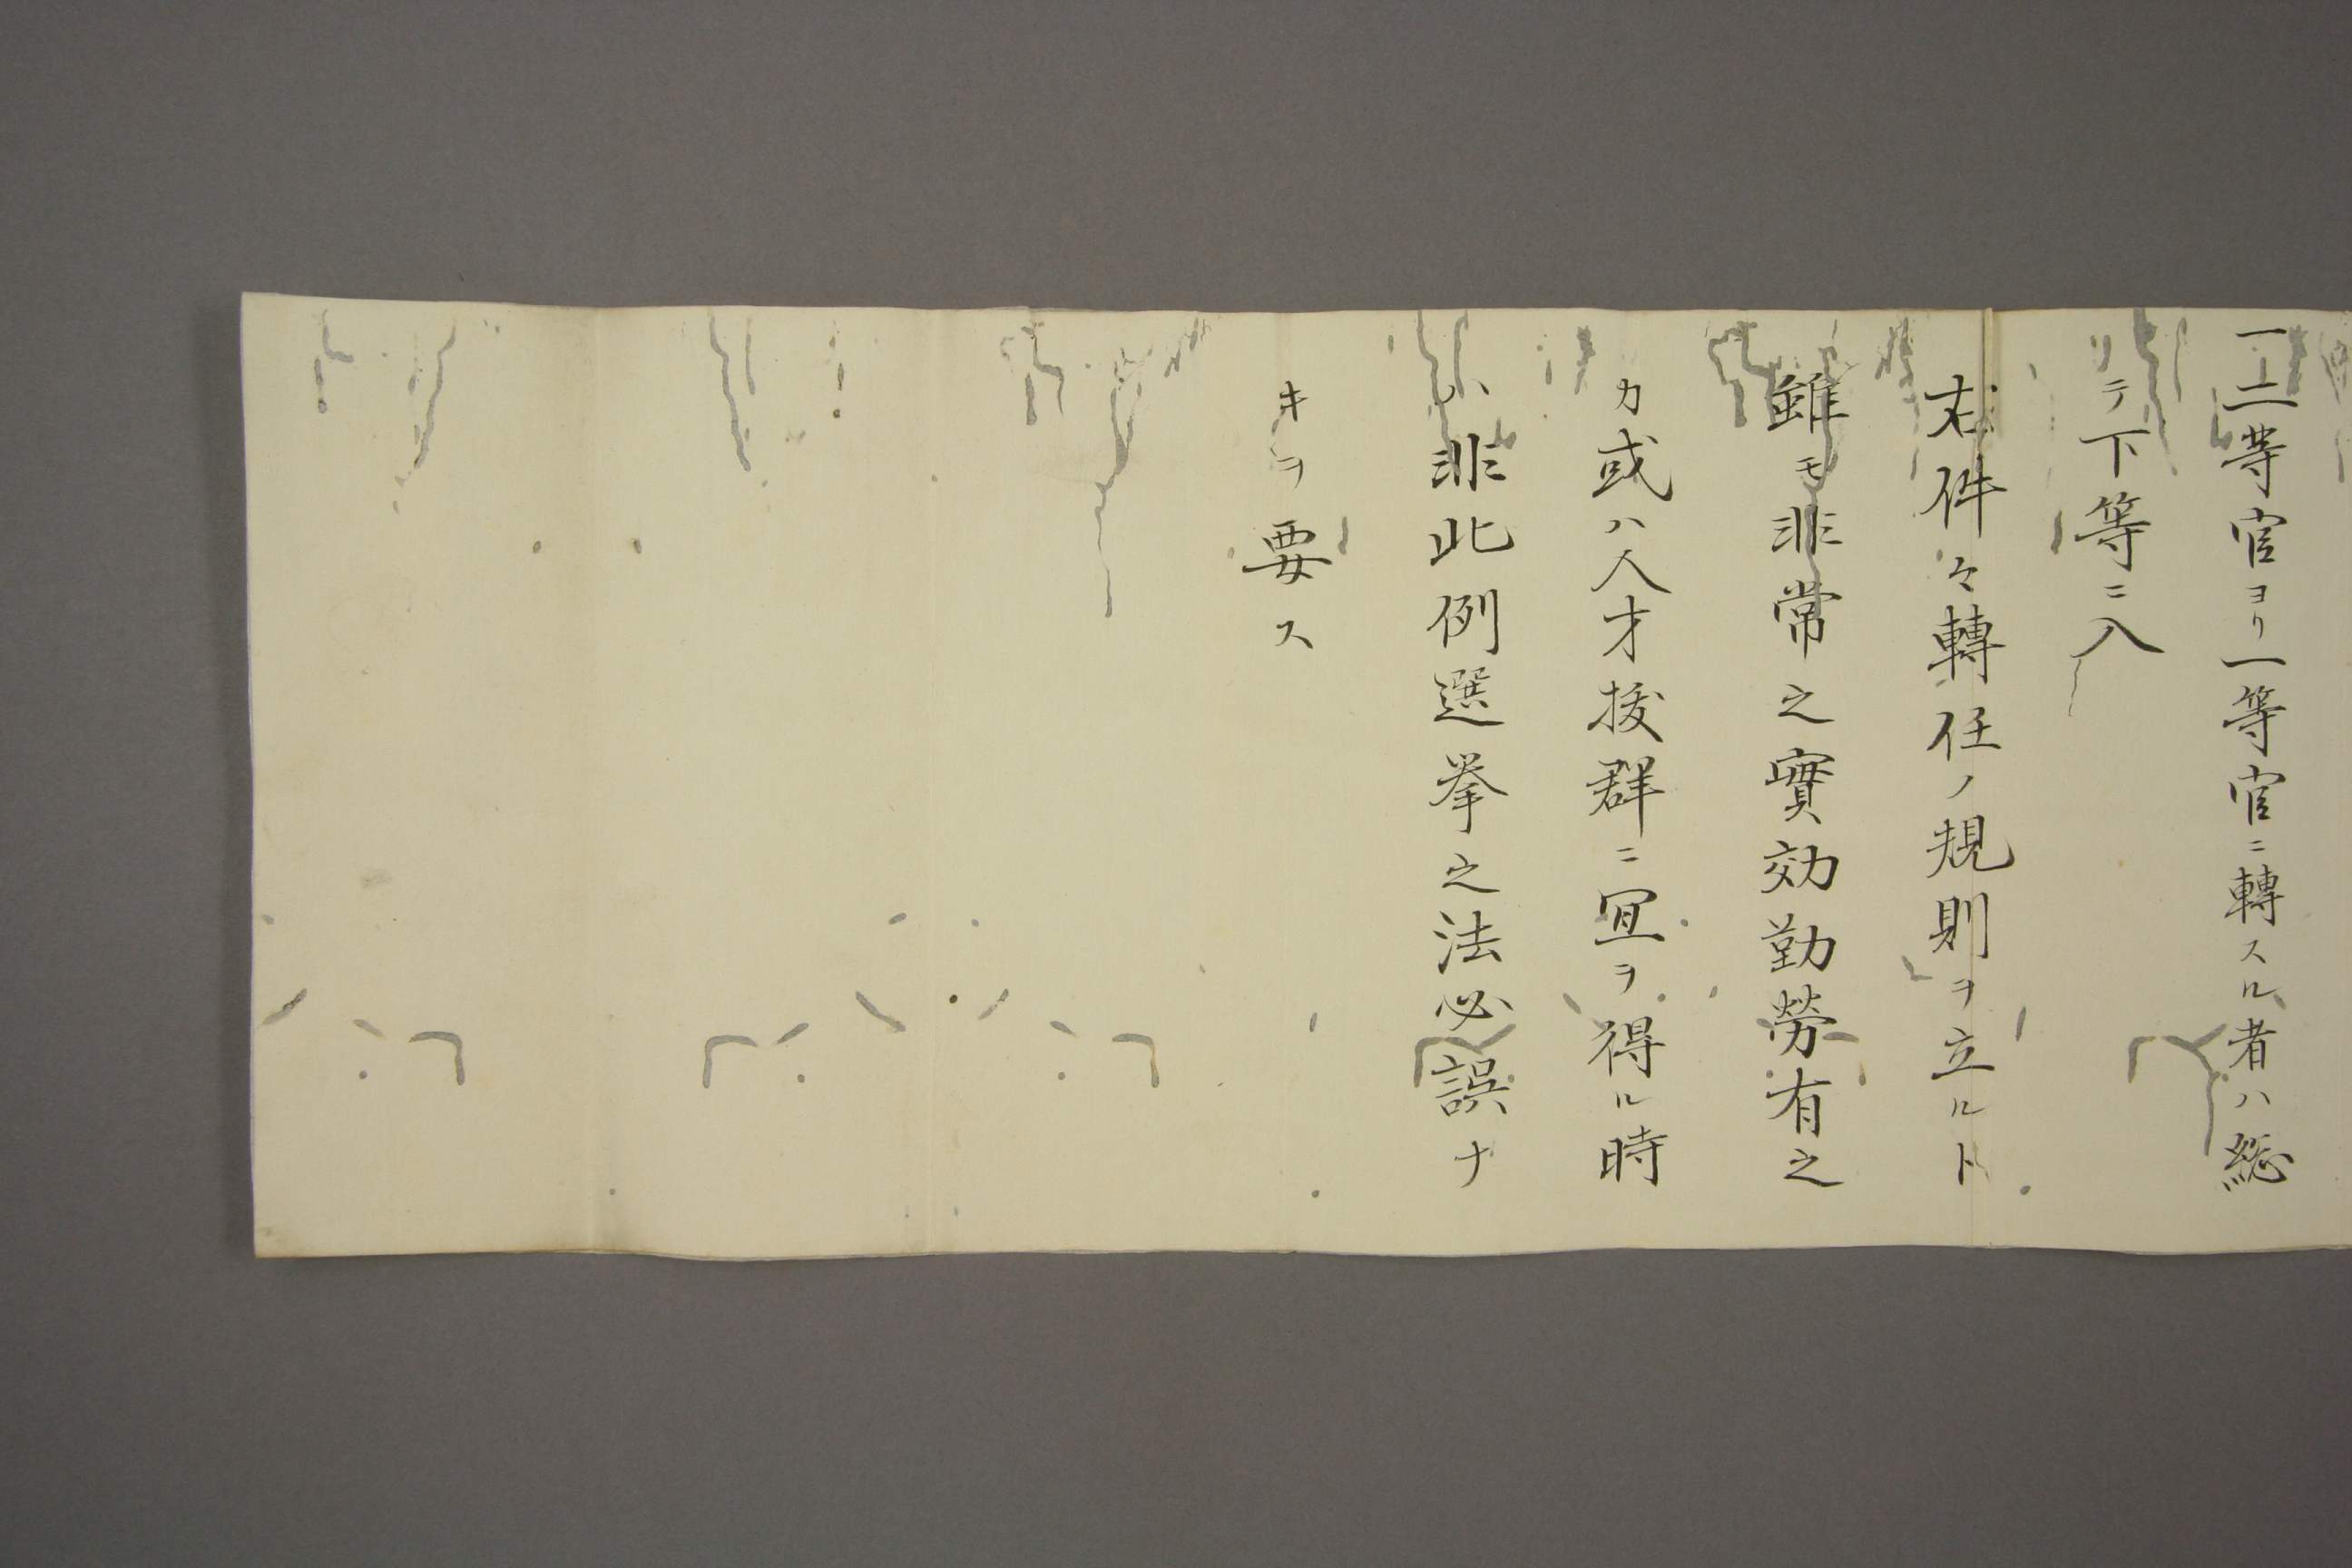 一二等官ヨリ一等官ニ轉スル者ハ総
テ下等ニ入
右件々轉任ノ規則ヲ立ルト
雖モ非常之實効勤勞有之
カ或ハ人才拔群ニ宜ヲ得ル時
ハ非此例選挙之法必誤ナ
キヲ要ス